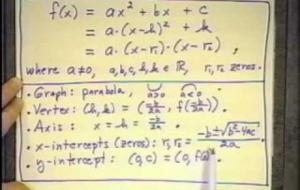 f(x) = ax² + bx + c
= a·(x-h)² + k
= a·(x-r₁)·(x-r₂) ,
where a≠0, a,b,c,h,k ∈ ℝ, r₁,r₂ zeros.
• Graph: parabola, a>0 a<0
• Vertex: (h,k) = (-b/2a, f(-b/2a))
• Axis : x = h = -b/2a
• x-intercepts (zeros): r₁,r₂ = -b±√b²-4ac/2a
• y-intercept: (0,c) = (0, f(0))